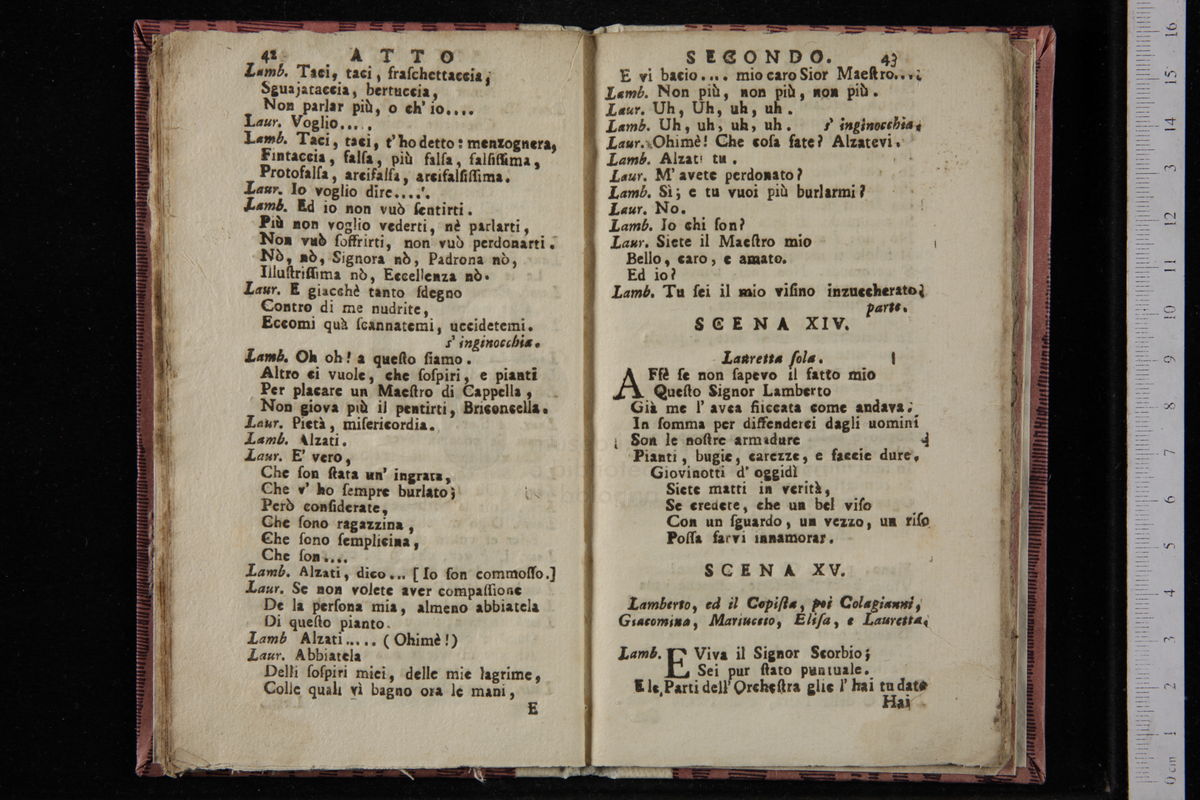 42 ATTO
Lamb. Taci, taci, fraſchettaccia,
Sguajataccia, bertuccia,
Non parlar più, o ch' io....
Laur. Voglio.....
Lamb. Taci, taci, t' ho detto: menzognera,
Fintaccia, falſa, più falſa, falſiſſima,
Protofalſa, arcifalſa, arcifalſiſſima.
Laur. Io voglio dire.....
Lamb. Ed io non vuò ſentirti.
Più non voglio vederti, nè parlarti,
Non vuò ſoffrirti, non vuò perdonarti.
Nò, nò, Signora nò, Padrona nò,
Illuſtriſſima nò, Eccellenza nò.
Laur. E giacchè tanto ſdegno
Contro di me nudrite,
Eccomi quà ſcannatemi, uccidetemi.
s' inginocchia.
Lamb. Oh oh! a queſto ſiamo.
Altro ci vuole, che ſoſpiri, e pianti
Per placare un Maeſtro di Cappella,
Non giova più il pentirti, Briconcella.
Laur. Pietà, miſericordia.
Lamb. Alzati.
Laur. E' vero,
Che ſon ſtata un' ingrata,
Che v' ho ſempre burlato;
Però conſiderate,
Che ſono ragazzina,
Che ſono ſemplicina,
Che ſon....
Lamb. Alzati, dico... [Io ſon commoſſo.]
Laur. Se non volete aver compaſſione
De la perſona mia, almeno abbiatela
Di queſto pianto.
Lamb Alzati..... (Ohimè!)
Laur. Abbiatela
Delli ſoſpiri miei, delle mie lagrime,
Colle quali vi bagno ora le mani,
E
SECONDO. 43
E vi bacio.... mio caro Sior Maeſtro....
Lamb. Non più, non più, non più.
Laur. Uh, Uh, uh, uh.
Lamb. Uh, uh, uh, uh. s' inginocchia.
Laur. Ohimè! Che coſa fate? Alzatevi.
Lamb. Alzati tu.
Laur. M' avete perdonato?
Lamb. Sì; e tu vuoi più burlarmi?
Laur. No.
Lamb. Io chi ſon?
Laur. Siete il Maeſtro mio
Bello, caro, e amato.
Ed io?
Lamb. Tu ſei il mio viſino inzuccherato.
parte.
SCENA XIV.
Lauretta ſola.
AFfè ſe non ſapevo il fatto mio
Queſto Signor Lamberto
Già me l' avea ficcata come andava.
In ſomma per diffenderci dagli uomini
Son le noſtre armadure
Pianti, bugie, carezze, e faccie dure.
Giovinotti d' oggidì
Siete matti in verità,
Se credete, che un bel viſo
Con un ſguardo, un vezzo, un riſo
Poſſa farvi innamorar.
SCENA XV.
Lamberto, ed il Copiſta, poi Colagianni,
Giacomina, Mariuccio, Eliſa, e Lauretta.
Lamb. EViva il Signor Scorbio;
Sei pur ſtato puntuale.
E le Parti dell' Orcheſtra glie l' hai tu date
Hai